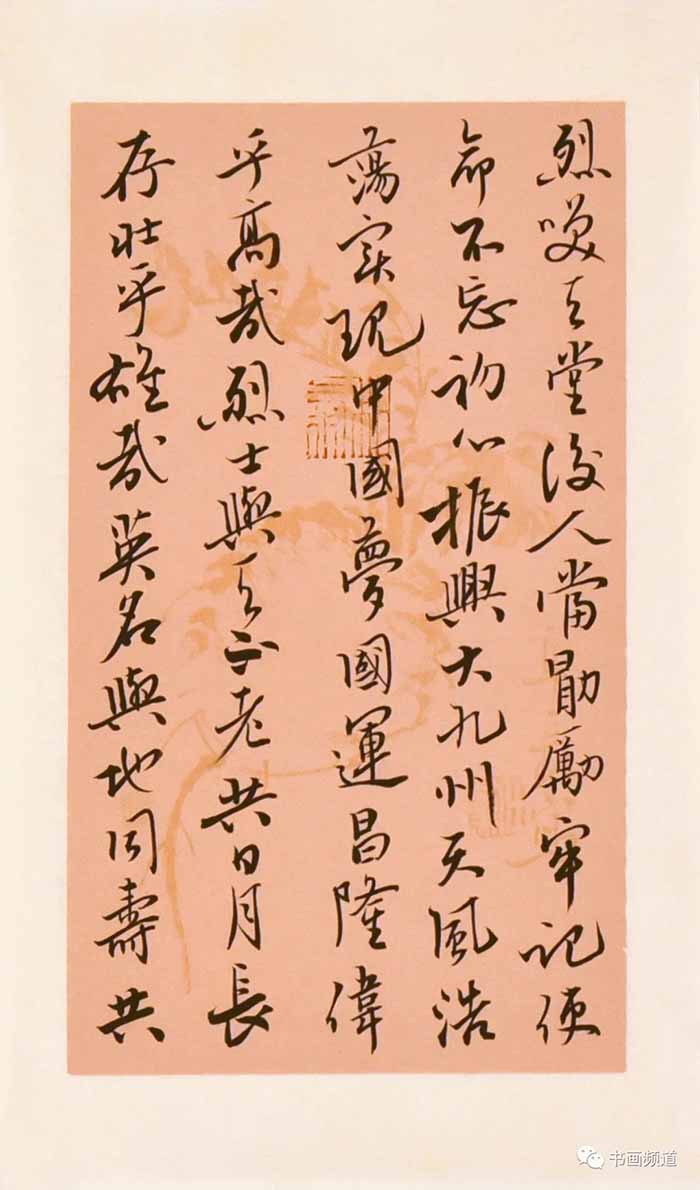 烈咲天堂後人當勖勵牢記使
命不忘初心振興大九州天風浩
蕩實現中國夢國運昌隆偉
乎高哉烈士與天不老共日月長
存壯乎雄哉英名與地同壽共
书画频道